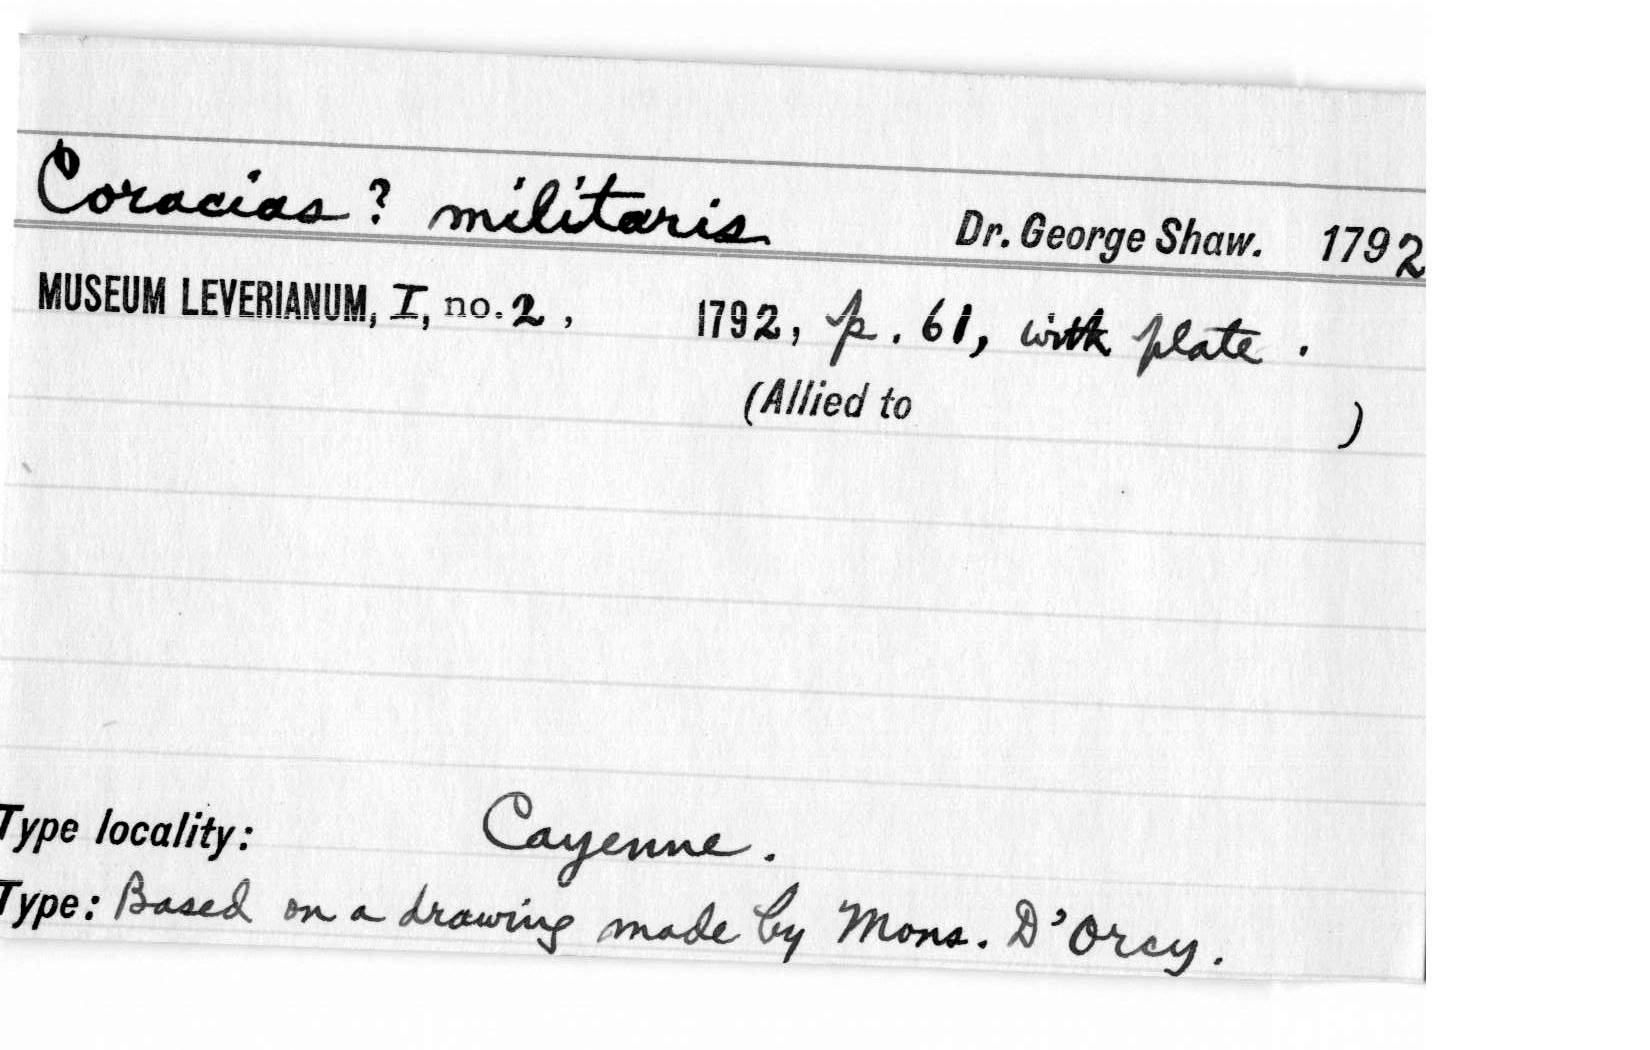 Coracias ? militaris Dr. George Shaw. 1792
MUSEUM LEVERIANUM, I, no. 2, 1792, p. 61, with plate.
(Allied to )
Type locality: Cayenne.
Type: Based on a drawing made by Mons. D'Orcy.